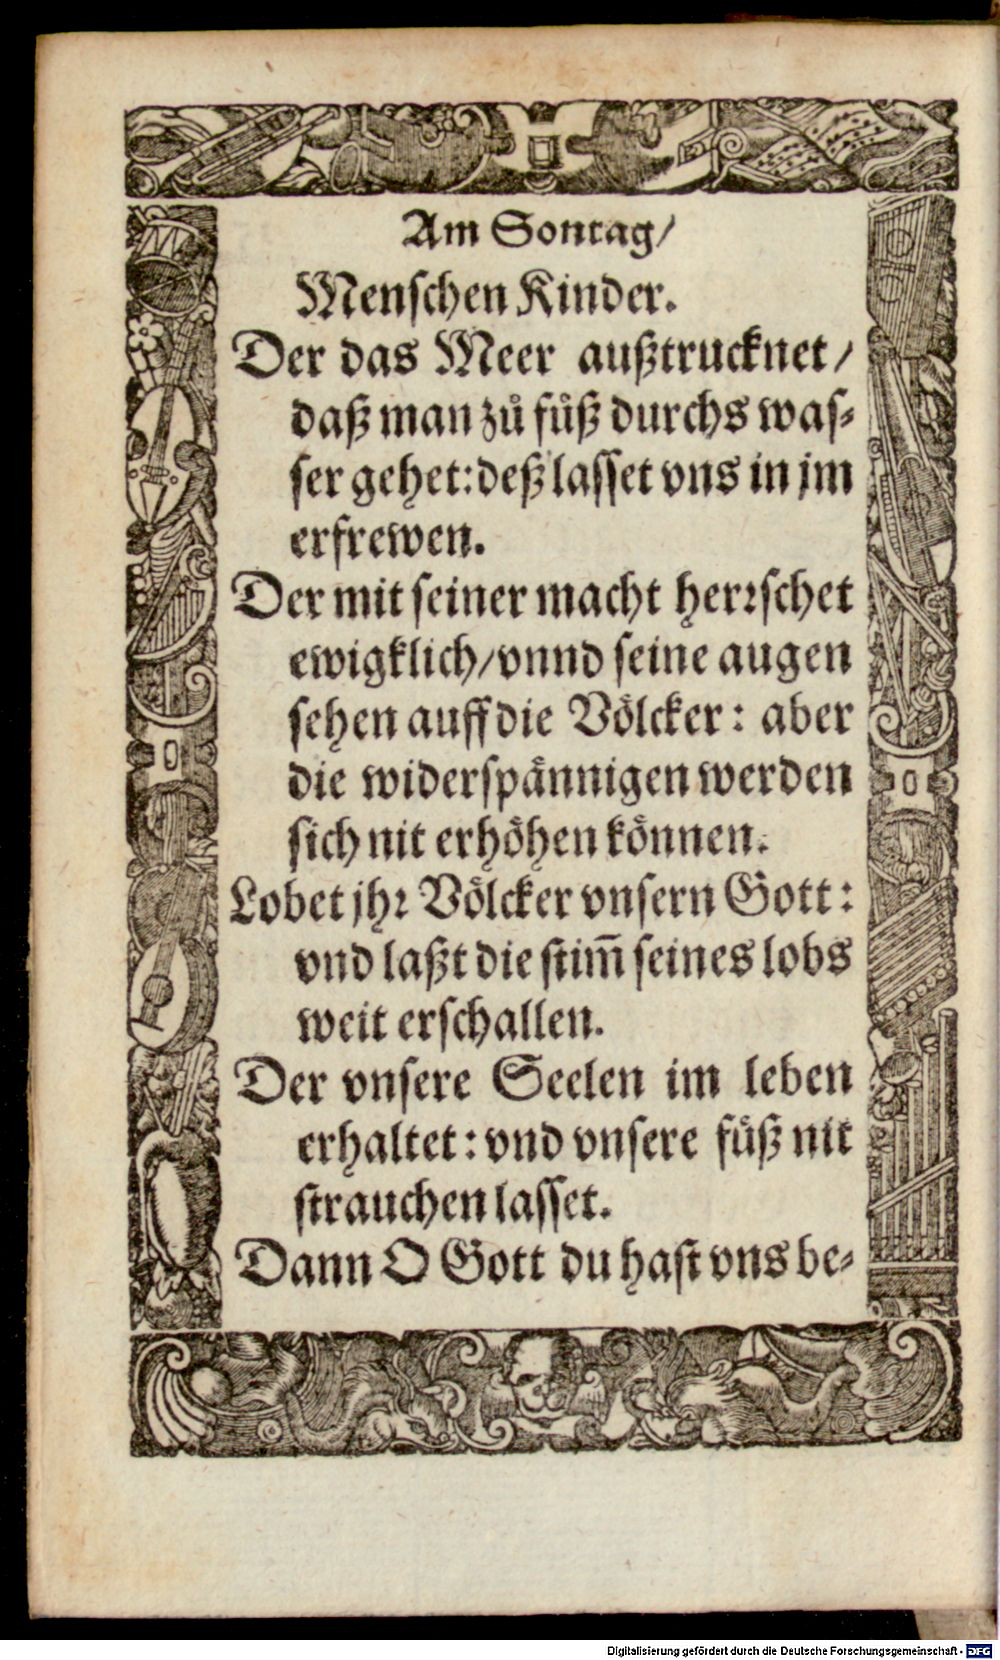 Am Sontag/
Menschen Kinder.
Der das Meer außtrucknet/
daß man zů fůß durchs was⸗
ser gehet: deß lasset vns in jm
erfrewen.
Der mit seiner macht herrschet
ewigklich/ vnnd seine augen
sehen auff die Völcker: aber
die widerspännigen werden
sich nit erhöhen können.
Lobet jhr Völcker vnsern Gott:
vnd laßt die stim̄ seines lobs
weit erschallen.
Der vnsere Seelen im leben
erhaltet: vnd vnsere füß nit
strauchen lasset.
Dann O Gott du hast vns be⸗
Digitalisierung gefördert durch die Deutsche Forschungsgemeinschaft - DFG